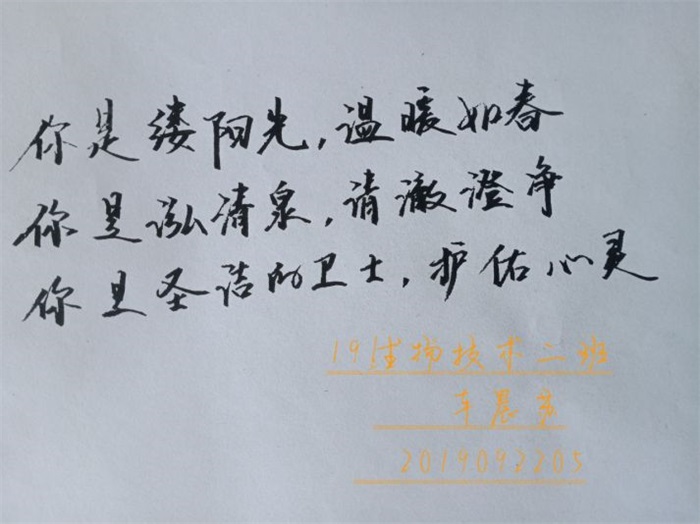 你是缕阳光,温暖如春
你是泓清泉,清澈澄净
你是圣洁的卫士,护佑心灵
19生物技术二班
车晨
2019092205